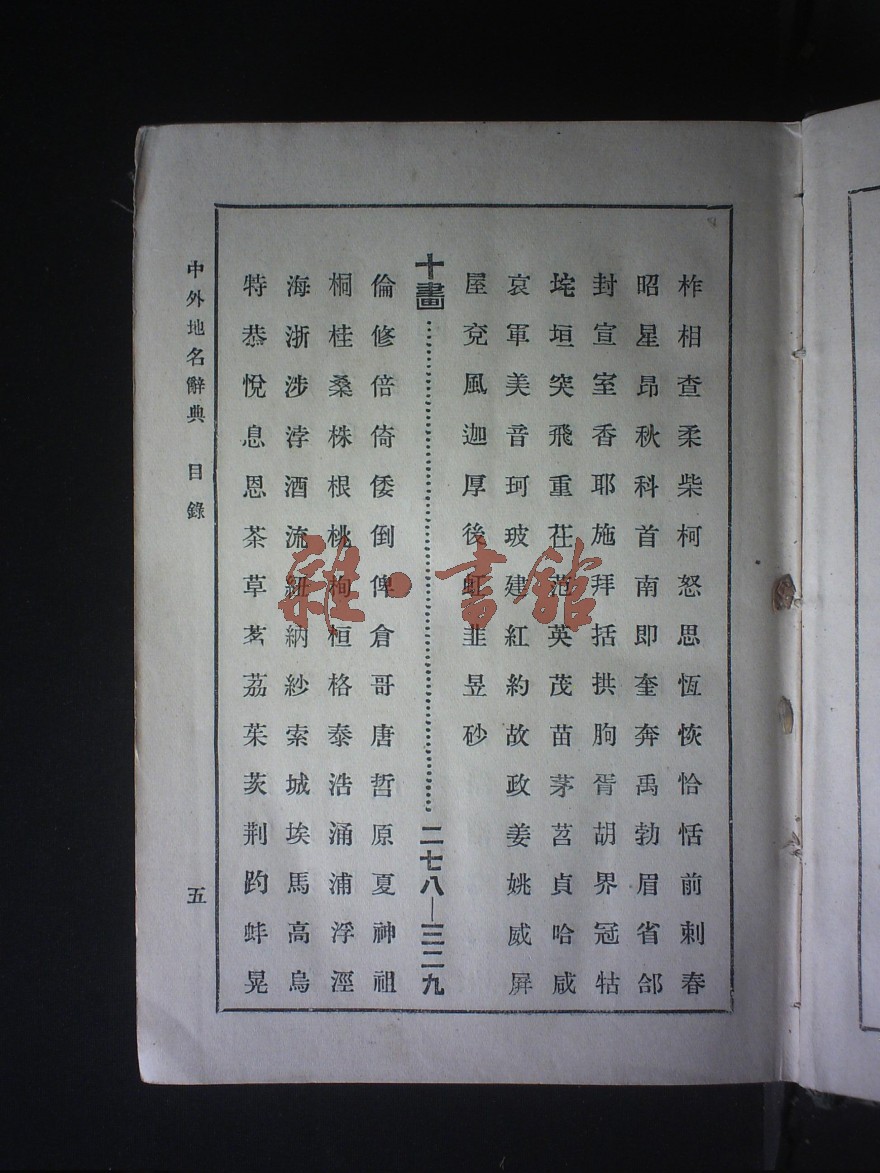 柞相查柔柴柯怒思恆恢恰恬前刺春
昭星昂秋科首南即奎奔禹勃眉省郃
封宣室香耶施拜括拱朐胥胡界冠牯
垞垣突飛重茌范英茂苗茅苕貞哈咸
哀軍美音珂玻建紅約故政姜姚威屏
屋兗風迦厚後虹韭昱砂
十畫 二七八—三二九
倫修倍倚倭倒俾倉哥唐哲原夏神祖
桐桂桑株根桃栒桓格泰浩涌浦浮涇
海浙涉浡酒流紐納紗索城埃馬高烏
特恭悅息恩茶草茗荔茱茨荆趵蚌晃
中外地名辭典 目錄
五
雜·書館